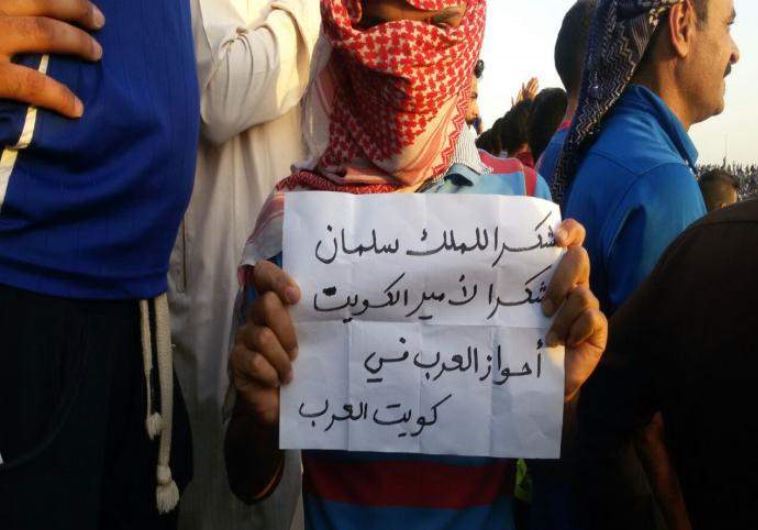 شكرا للملك سلمان
شكرا لأمير الكويت
أحواز العرب في
كويت العرب